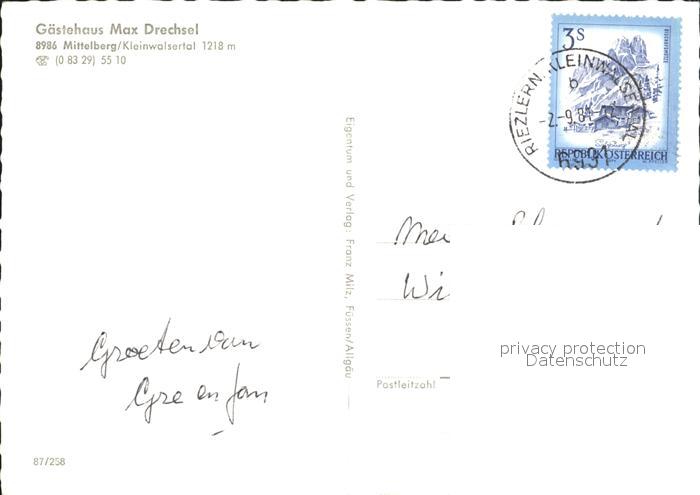 Gästehaus Max Drechsel
8986 Mittelberg/Kleinwalsertal 1218 m
☎ (0 83 29) 55 10
3 S
REPUBLIK ÖSTERREICH
RIEZLERN, KLEINWALSERTAL
b
-2.-9.84
6991
Eigentum und Verlag: Franz Milz, Füssen/Allgäu
Groeten van
Gre en Jan
Postleitzahl
privacy protection
Datenschutz
87/258